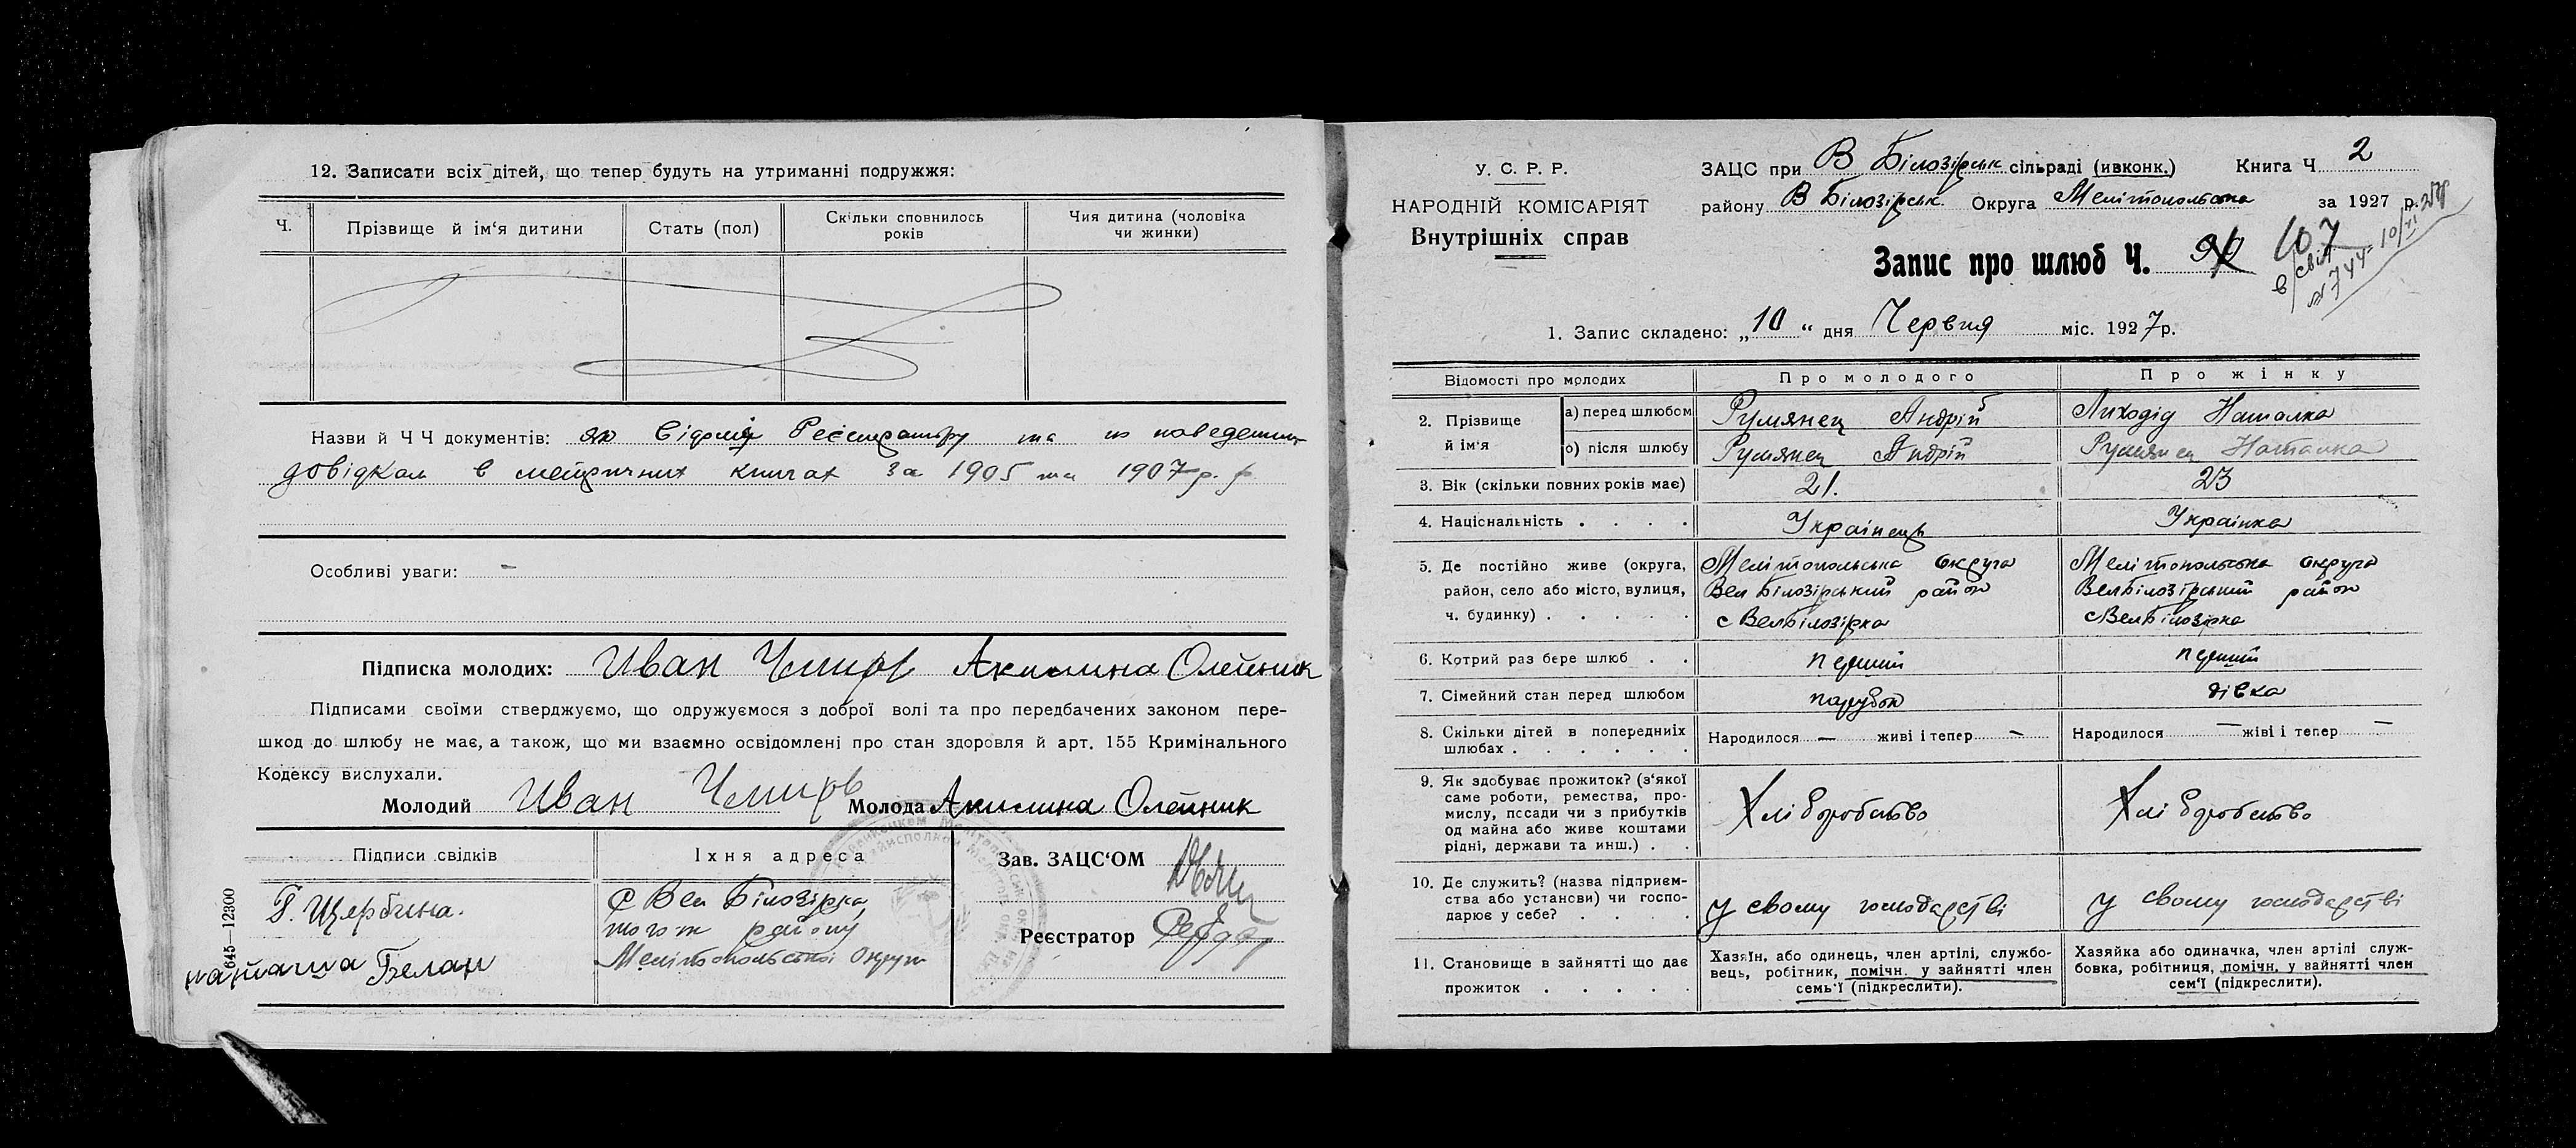 12. Записати всіх дітей, що тепер будуть на утриманні подружжя:
Ч. Прізвище й ім‘я дитини Стать (пол) Скільки сповнилось років Чия дитина (чоловіка чи жинки)
Назви й Ч Ч документів: як Відомі Реєстратору та по наведеним
довідкам в метричних книгах за 1905 та 1907 р. р
Особливі уваги: –
Підписка молодих: Иван Чмирь Акилина Олейник
Підписами своїми стверджуємо, що одружуємося з доброї волі та про передбачених законом пере-
шкод до шлюбу не має, а також, що ми взаємно освідомлені про стан здоровля й арт. 155 Кримінального
Кодексу вислухали.
Молодий Иван Чмирь Молода Акилина Олейник
Підписи свідків Їхня адреса Зав. ЗАЦС‘ОМ
Г. Щербина. с Вел Білозірка,
того ж району
наташа Белан Мелітопольської Округи
Реєстратор
645—12300
У. С. Р. Р.
НАРОДНІЙ КОМІСАРІЯТ
Внутрішніх справ
ЗАЦС при В Білозірськ сільраді (ивконк.) Книга Ч 2
району В Білозірськ Округа Мелітопольська за 1927 р.
Запис про шлюб Ч. 90 107
№ 744 10/VI 27
1. Запис складено: „10“ дня Червня міс. 1927р.
Відомості про молодих Про молодого Про жінку
2. Прізвище й ім‘я а) перед шлюбом Румянец Андрій Лиходід Наталка
о) після шлюбу Румянец Андрій Румянец Наталка
3. Вік (скільки повних років має) 21. 23
4. Національність . . . . Українець Українка
5. Де постійно живе (округа, Мелітопольська округа Мелітопольська округа
район, село або місто, вулиця, Вел Білозірський район Вел Білозірський район
ч. будинку) . . . . . с Вел Білозірка с Вел Білозірка
6. Котрий раз бере шлюб . . перший перший
7. Сімейний стан перед шлюбом парубок дівка
8. Скільки дітей в попередниіх шлюбах . . . . . . Народилося — живі і тепер — Народилося — жіві і тепер —
9. Як здобуває прожиток? (з‘якої
саме роботи, ремества, про-
мислу, пссади чи з прибутків
од майна або живе коштами
рідні, держави та инш.) . . Хліборобство Хліборобство
10. Де служить? (назва підприєм-
ства або установи) чи госпо-
дарює у себе? . . . . у свому господарстві у свому господарстві
11. Становище в зайнятті що дає
прожиток . . . . .
Хазяїн, або одинець, член артілі, службо-
вець, робітник, помічн. у зайнятті член
семь‘ї (підкреслити).
Хазяйка або одиначка, член артілі служ-
бовка, робітниця, помічн. у зайнятті член
сем‘ї (підкреслити).